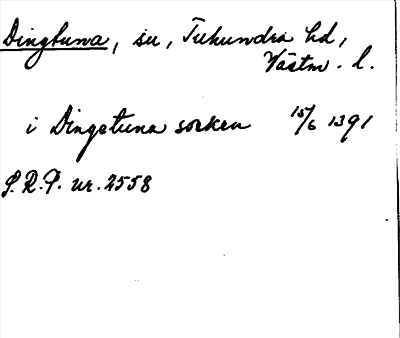 Dingtuna, sn, Tuhundra hd,
Västm. l.
i Dingetuna soken 15/6 1391
S.R.P. nr. 2558